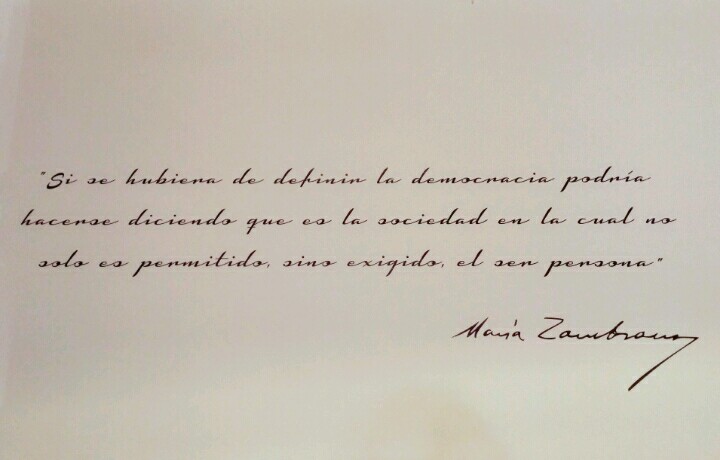 "Si se hubiera de definir la democracia podría
hacerse diciendo que es la sociedad en la cual no
solo es permitido, sino exigido, el ser persona"
María Zambrano